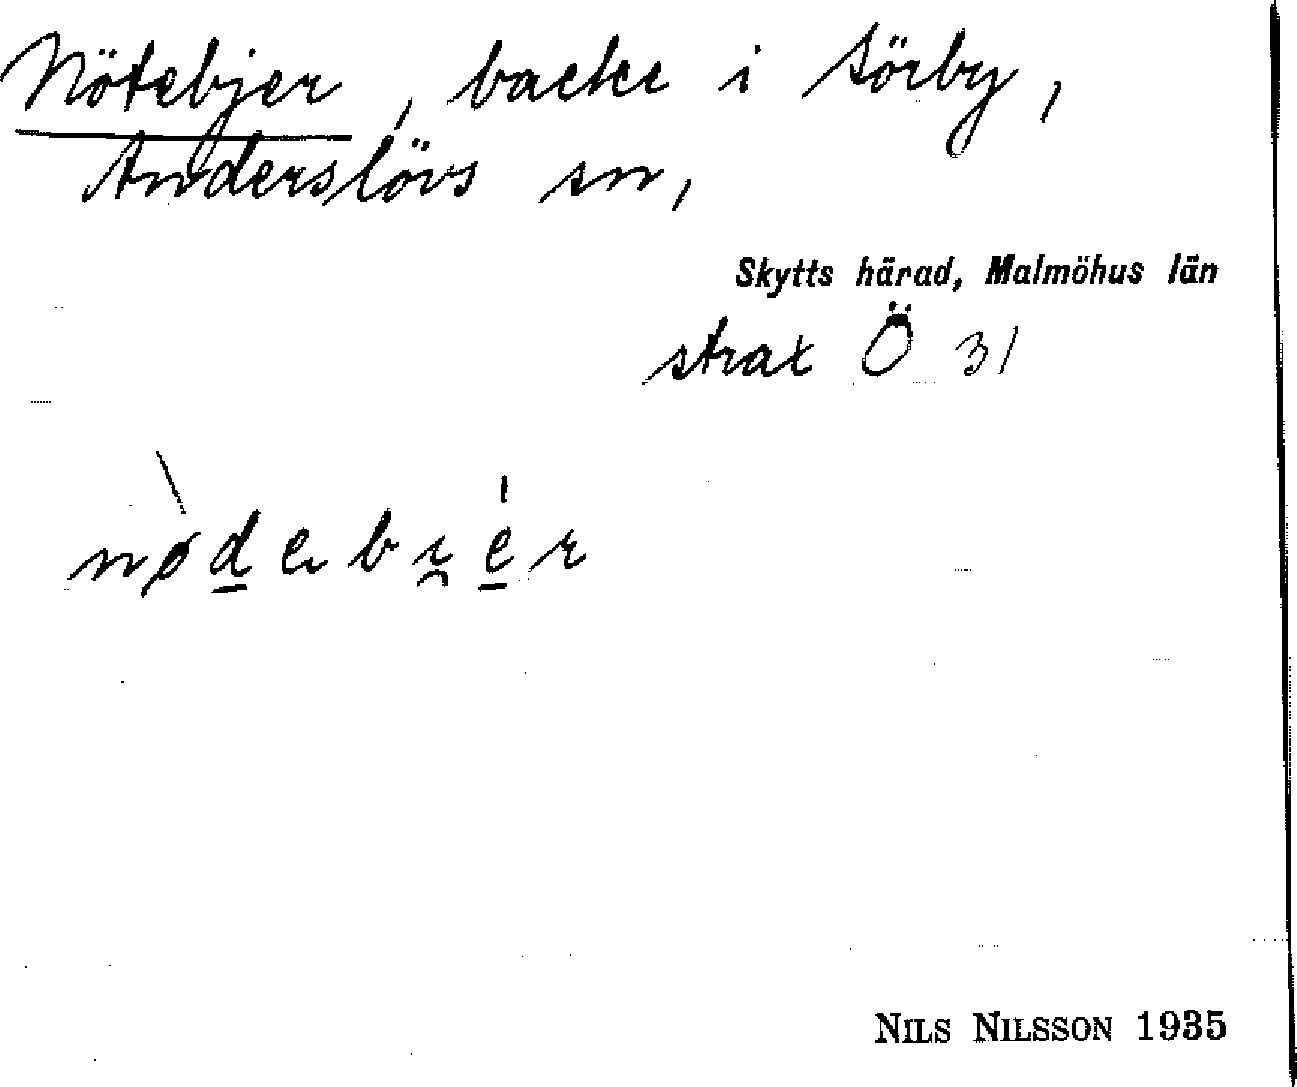 Nötebjer, backe i Sörby,
Anderslövs sn,
Skytts härad, Malmöhus län
strax Ö 31
NILS NILSSON 1935